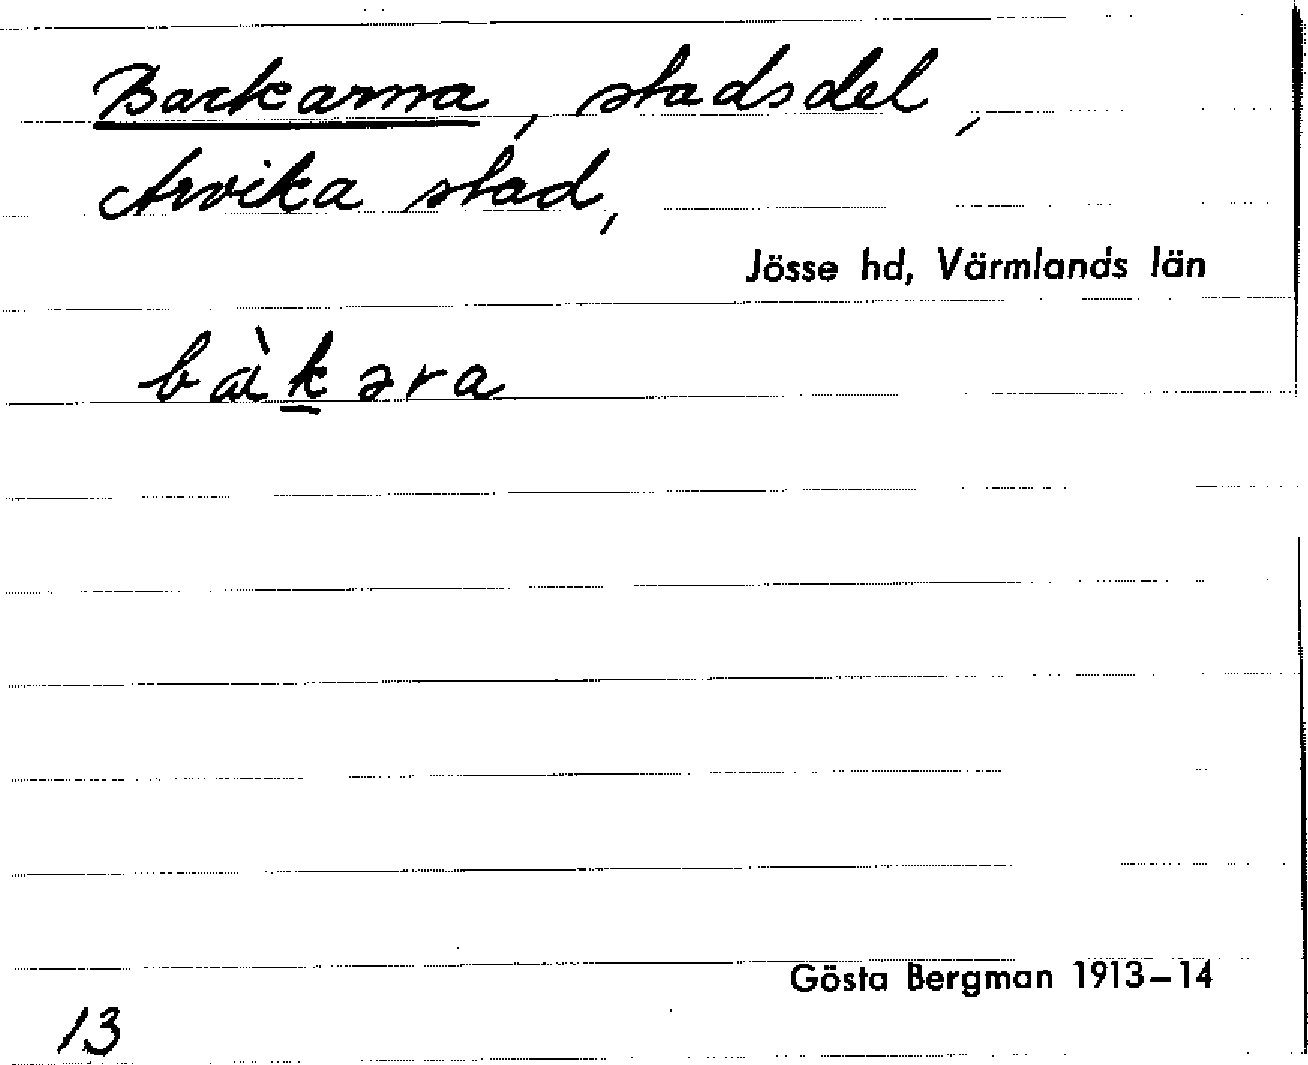 Backarna, stadsdel,
Arvika stad,
Jösse hd, Värmlands län
bàk̲əra
Gösta Bergman 1913–14
13